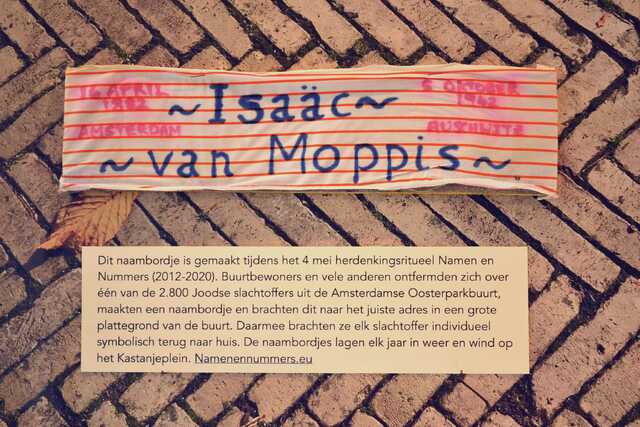 16 APRIL
1882
AMSTERDAM
~Isaäc~
~van Moppis~
5 OKTOBER
1942
AUSCHWITZ
Dit naambordje is gemaakt tijdens het 4 mei herdenkingsritueel Namen en
Nummers (2012-2020). Buurtbewoners en vele anderen ontfermden zich over
één van de 2.800 Joodse slachtoffers uit de Amsterdamse Oosterparkbuurt,
maakten een naambordje en brachten dit naar het juiste adres in een grote
plattegrond van de buurt. Daarmee brachten ze elk slachtoffer individueel
symbolisch terug naar huis. De naambordjes lagen elk jaar in weer en wind op
het Kastanjeplein. Namenennummers.eu